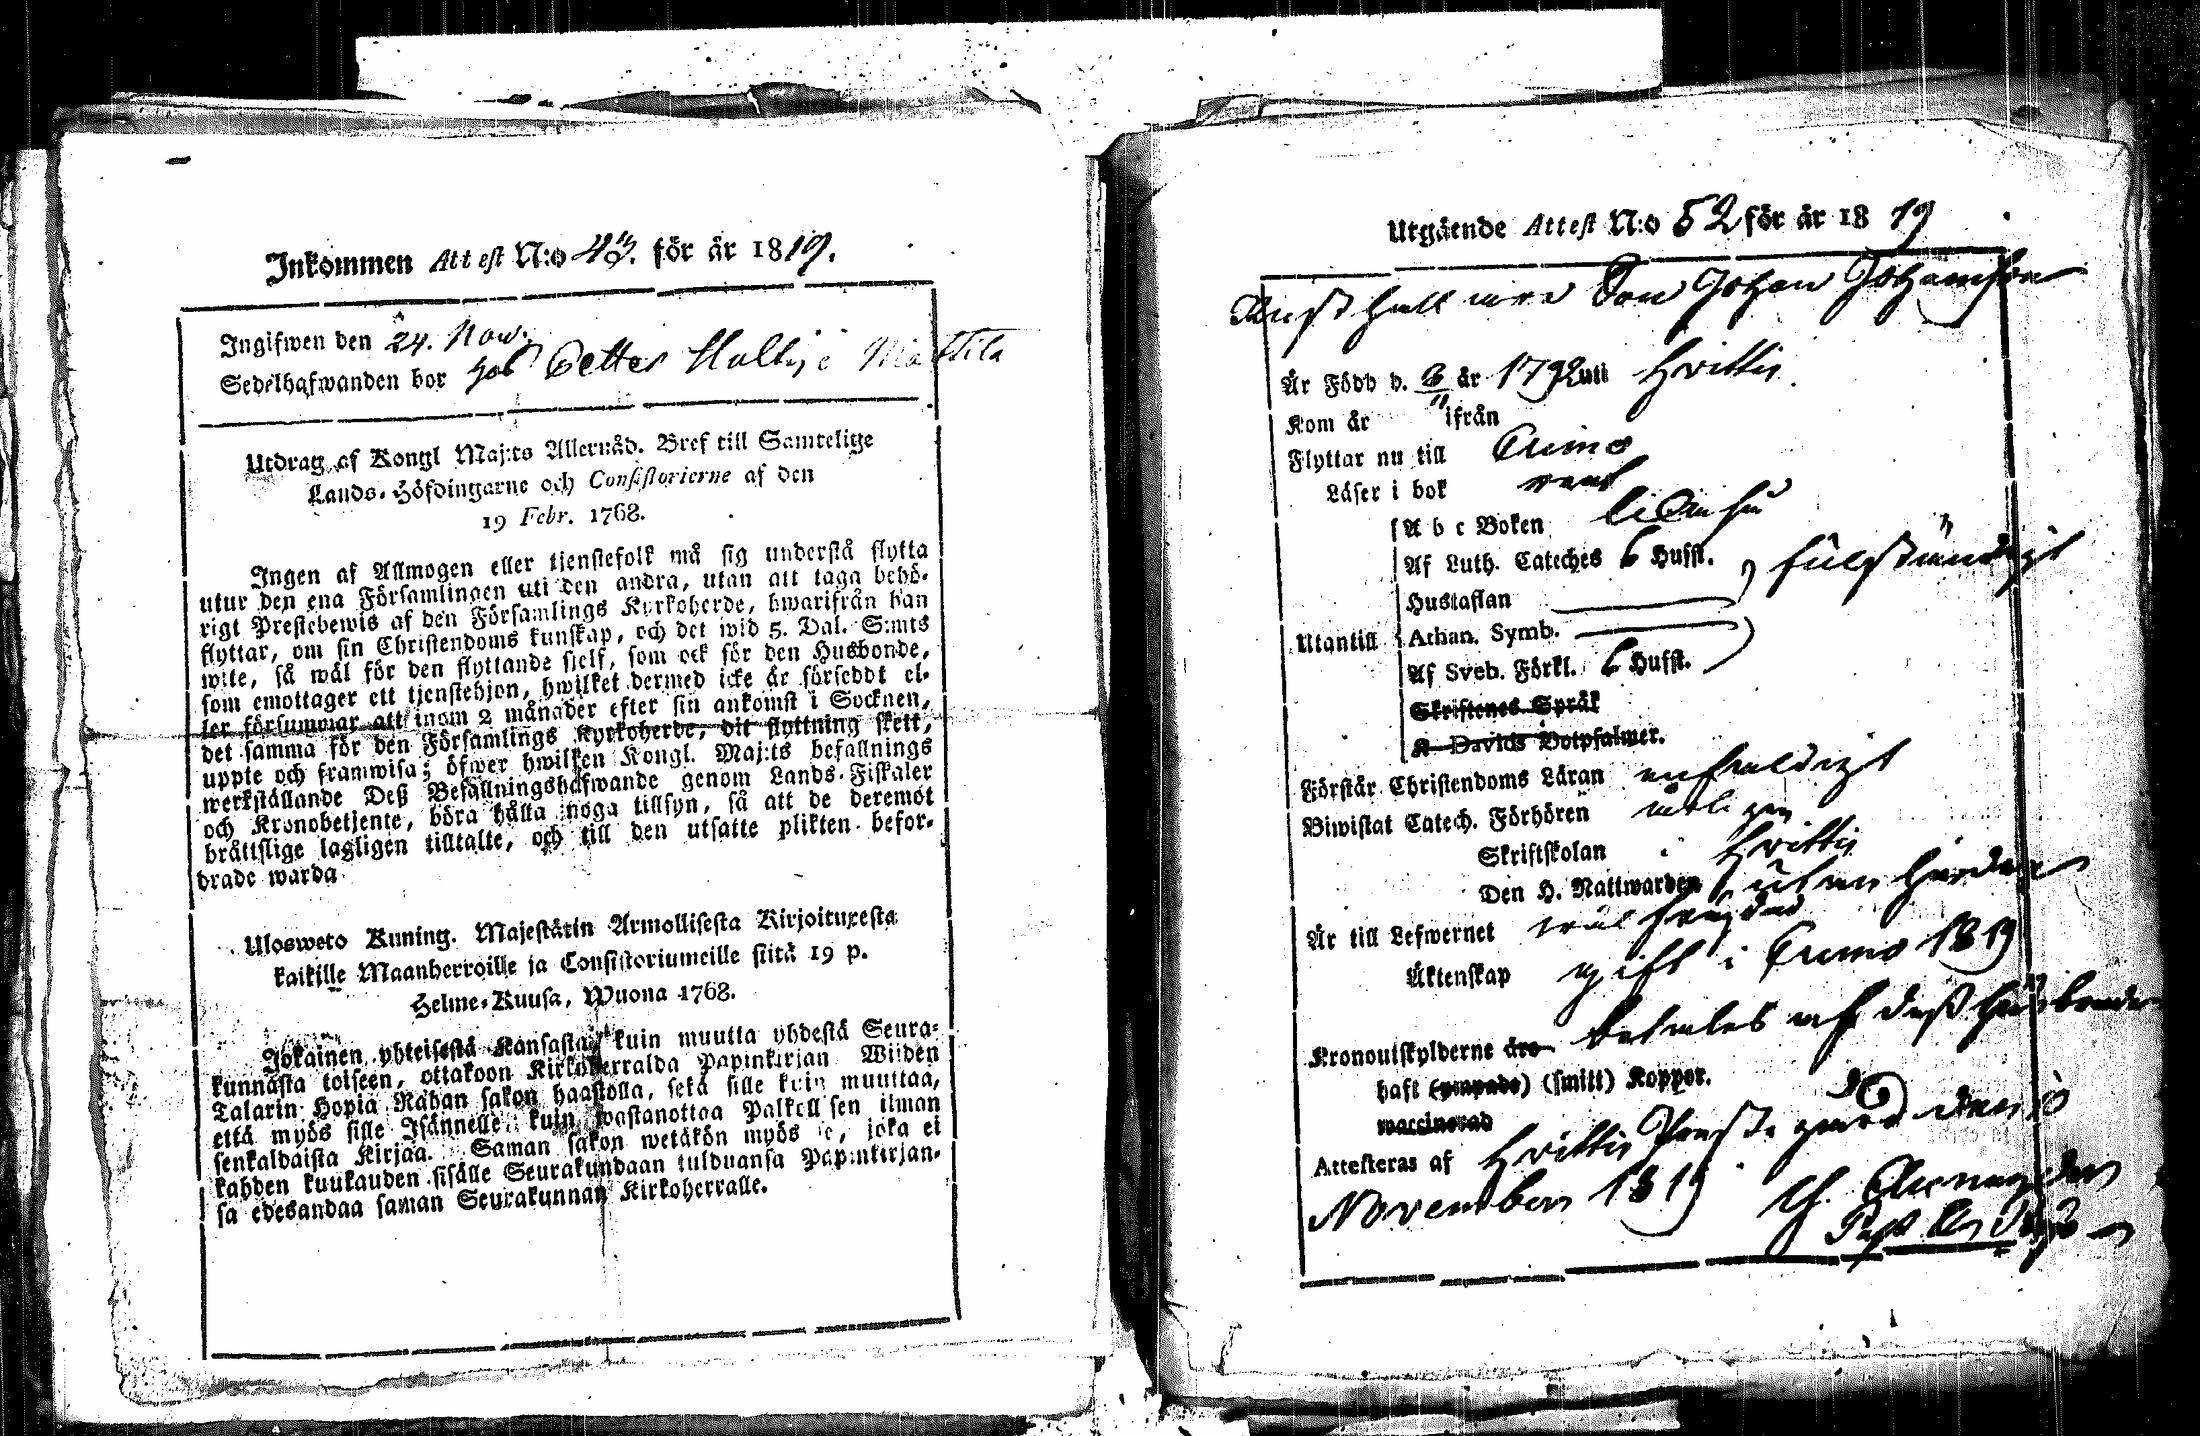 Inkommen Attest N:o 43. för år 1819.
Ingifwen den 24. Now.
Sedelhafwanden bor hos Petter Mattila
Utdrag af Kongl Maj:ts Allernåd. Bref till Samtelige
Lands-Höfdingarne och Consistorierne af den
19 Febr. 1768.
Ingen af Allmogen eller tjenstefolk må sig understå flytta
utur den ena Församlingen uti den andra, utan att taga behö-
rigt Prestebewis af den Församlings Kyrkoherde, hwarifrån han
flyttar, om sin Christendoms kunskap, och det wid 5. Dal. S:mts
wite, så wäl för den flyttande sjelf, som ock för den Husbonde,
som emottager ett tjenstehjon, hwilket dermed icke är försedt el-
ler försummar att inom 2 månader efter sin ankomst i Socknen,
det samma för den Församlings Kyrkoherde, dit flyttning skett,
uppte och framwisa; öfwer hwilken Kongl. Maj:ts befallnings
werkställande Deß Befallningshafwande genom Lands-Fiskaler
och Kronobetjente, böra hålla noga tillsyn, så att de deremot
bråttslige lagligen tilltalte, och till den utsatte plikten befor-
drade warda
Ulosweto Kuning. Majestätin Armollisesta Kirjoituxesta
kaikille Maanherroille ja Consistoriumeille siitä 19 p.
Helme-Kuusa, Wuona 1768.
Jokainen yhteisestä Kansasta kuin muutta yhdestä Seura-
kunnasta toiseen, ottakoon Kirkoherralda Papinkirjan Wiiden
Talarin Hopia Rahan sakon haastolla, sekä sille kuin muuttaa,
että myös sille Isännelle kuin wastanottaa Palkollisen ilman
senkaldaista Kirjaa. Saman sakon wetäkön myös se, joka ei
kahden kuukauden sisälle Seurakundaan tulduansa Papinkirjan-
sa edesandaa saman Seurakunnan Kirkoherralle.
Utgående Attest N:o 52 för år 1819
Johan Johansson
Är Född d. 3/11 år 1792 uti Hvittis
Kom år ifrån
Flyttar nu till Eurao
Läser i bok rent
A b c Boken
Af Luth. Cateches 6 Hufst. fullständigt
Hustaflan
Utantill Athan. Symb.
Af Sveb. Förkl. 6 Hufst.
Skriftenes Språk
K Davids Botpsalmer.
Förstår Christendoms Läran enfaldigt
Biwistat Catech. Förhören
Skriftskolan i Hvittis
Den H. Nattwarden
Är till Lefwernet wäl
Äktenskap gift i 1819
Kronoutskylderne äro betalas af deß husbonde
haft (ympade) (smitt) Koppor.
waccinerad
Attesteras af Hvittis Prestegård den 10
November 1819